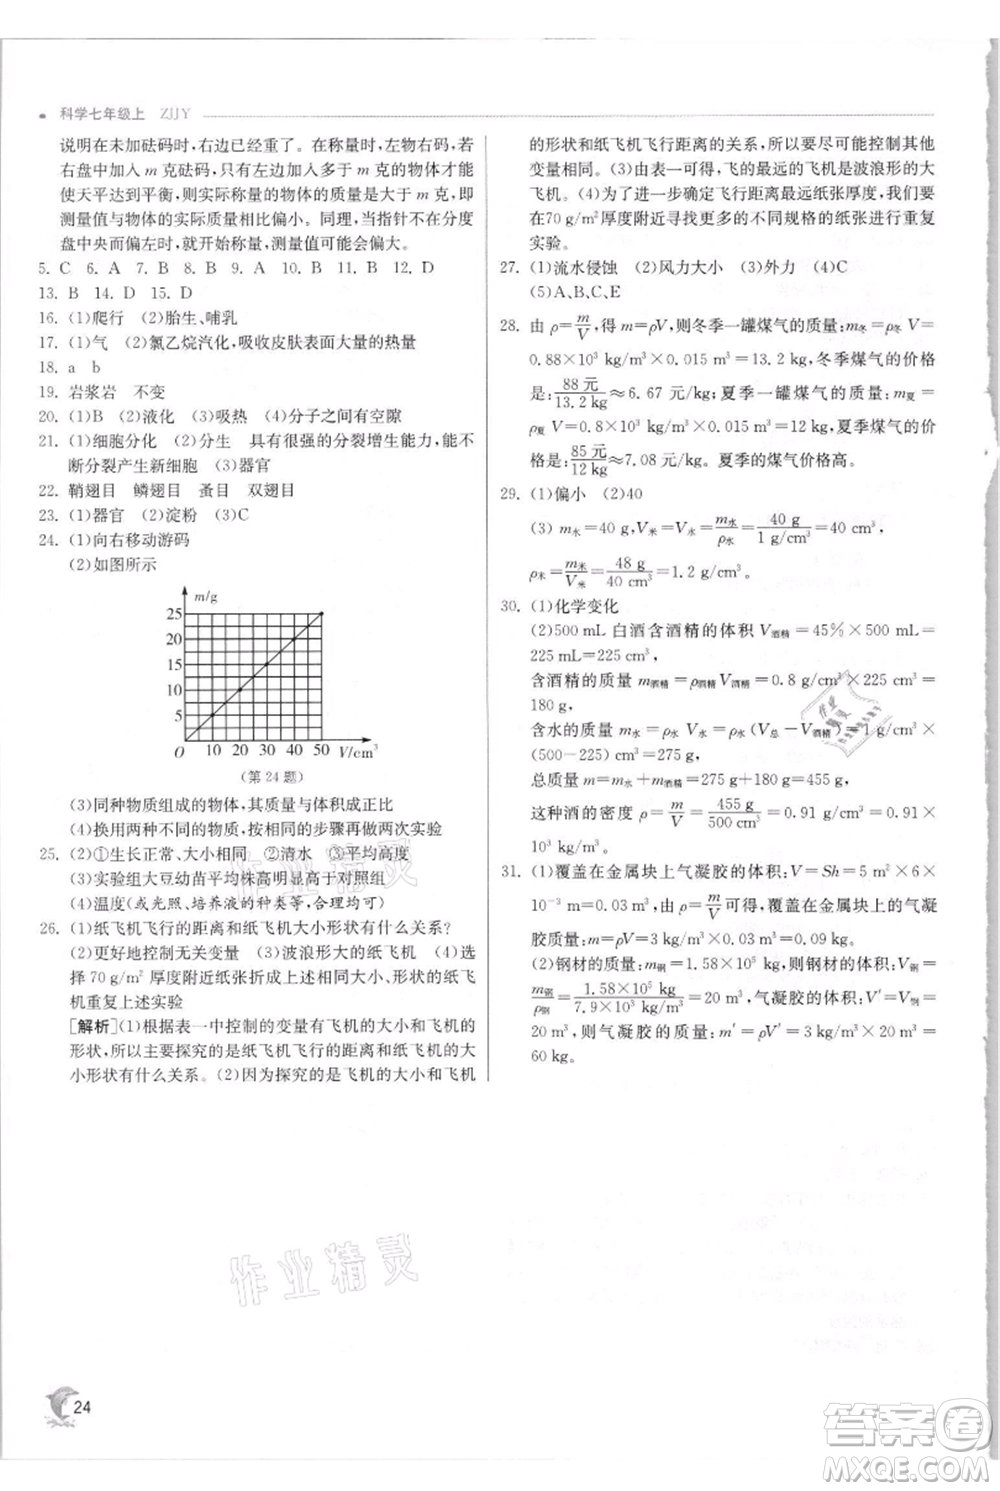 科学七年级上 ZJJY
说明在未加砝码时,右边已经重了。在称量时,左物右码,若
右盘中加入 m 克砝码,只有左边加入多于 m 克的物体才能
使天平达到平衡,则实际称量的物体的质量大于 m 克,即
测量值与物体的实际质量相比偏小。同理,当指针不在分度
盘中央而偏左时,就开始称量,测量值可能会偏大。
5. C 6. A 7. D 8. D 9. D 10. B 11. B 12. D
13. B 14. D 15. D
16. (1)爬行 (2)胎生、哺乳
17. (1)气 (2)氯乙烷汽化,吸收皮肤表面大量的热量
18. a b
19. 岩浆岩 不变
20. (1)B (2)液化 (3)吸热 (4)分子之间有空隙
21. (1)细胞分化 (2)分生 具有很强的分裂增生能力,能不
断分裂产生新细胞 (3)器官
22. 鞘翅目 鳞翅目 蚤目 双翅目
23. (1)器官 (2)淀粉 (3)C
24. (1)向右移动游码
(2)如图所示
m/g
25
20
15
10
5
O 10 20 30 40 50 V/cm³
(第 24 题)
(3)同种物质组成的物体,其质量与体积成正比
(4)换用两种不同的物质,按相同的步骤再做两次实验
25. (2)①生长正常、大小相同 ②清水 ③平均高度
(3)实验组大豆幼苗平均株高明显大于对照组
(4)温度(或光照、培养液的种类等,合理均可)
26. (1)纸飞机飞行的距离和纸飞机大小形状有什么关系?
(2)更好地控制无关变量 (3)波浪形大的纸飞机 (4)选
择 70 g/m² 厚度附近纸张折成上述相同大小、形状的纸飞
机重复上述实验
[解析](1)根据表一中控制的变量有飞机的大小和飞机的
形状,所以主要探究的是纸飞机飞行的距离和纸飞机的大
小形状有什么关系。(2)因为探究的是飞机的大小和飞机
的形状和纸飞机飞行距离的关系,所以要尽可能控制其他
变量一致。(3)由表一可得,飞的最远的飞机是波浪形的大
飞机。(4)为了进一步确定飞行距离最远纸张厚度,我们要
在70 g/m² 厚度附近寻找更多的不同规格的纸张进行重复
实验。
27. (1)流水侵蚀 (2)风力大小 (3)外力 (4)C
(5)A、B、C、E
28. 由 ρ=m/V,得 m=ρV,则冬季一罐煤气的质量:m冬=ρ冬 V=
0.88×10³ kg/m³×0.015 m³=13.2 kg,冬季煤气的价格
是:88 元/13.2 kg≈6.67 元/kg;夏季一罐煤气的质量:m夏=
ρ夏 V=0.8×10³ kg/m³×0.015 m³=12 kg,夏季煤气的价
格是:85 元/12 kg≈7.08 元/kg。夏季的煤气价格高。
29. (1)偏小 (2)40
(3) m水=40 g,V米=V水=m水/ρ水=40 g/1 g/cm³=40 cm³,
ρ米=m米/V米=48 g/40 cm³=1.2 g/cm³。
30. (1)化学变化
(2)500 mL 白酒含酒精的体积 V酒精=45%×500 mL=
225 mL=225 cm³,
含酒精的质量 m酒精=ρ酒精V酒精=0.8 g/cm³×225 cm³=
180 g,
含水的质量 m水=ρ水V水=ρ水(V总-V酒精)=1 g/cm³×
(500-225) cm³=275 g,
总质量 m=m水+m酒精=275 g+180 g=455 g,
这种酒的密度 ρ=m/V=455 g/500 cm³=0.91 g/cm³=0.91×
10³ kg/m³。
31. (1)覆盖在金属块上气凝胶的体积:V=Sh=5 m²×6×
10⁻³ m=0.03 m³,由ρ=m/V可得,覆盖在金属块上的气凝
胶质量:m=ρV=3 kg/m³×0.03 m³=0.09 kg。
(2)钢材的质量:m钢=1.58×10⁵ kg,则钢材的体积:V钢=
m钢/ρ钢=1.58×10⁵ kg/7.9×10³ kg/m³=20 m³,气凝胶的体积:V′=V钢=
20 m³,则气凝胶的质量:m′=ρV′=3 kg/m³×20 m³=
60 kg。
作业精灵
作业精灵
作业精灵
24
答案圈
MXQE.COM